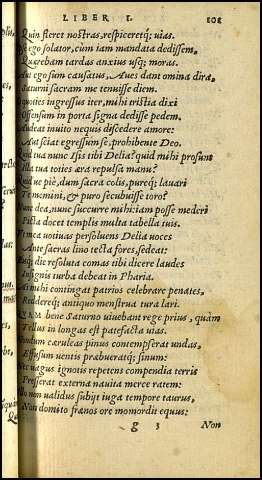 LIBER I. 101
Quin fleret nostras, respiceretq; uias.
se ego solator, cùm iam mandata dedissem,
Quærebam tardas anxius usq; moras.
Aut ego sum causatus, Aues dant omina dira,
Saturni sacram me tenuisse diem.
quoties ingressus iter, mihi tristia dixi
Offensum in porta signa dedisse pedem.
Audeat inuito nequis discedere amore:
Aut sciat egressum se, prohibente Deo.
Quid tua nunc Isis tibi Delia? quid mihi prosunt
Illa tua toties æra repulsa manu?
Quid ue piè, dum sacra colis, pureq; lauari
Te memini, & puro secubuisse toro?
Nunc dea, nunc succurre mihi: iam posse mederi
Picta docet templis multa tabella tuis.
mea uotiuas persoluens Delia uoces
Ante sacras lino tecta fores, sedeat:
Bisq; die resoluta comas tibi dicere laudes
Insignis turba debeat in Pharia.
At mihi contingat patrios celebrare penates,
Reddereq; antiquo menstrua tura lari.
QVAM bene Saturno uiuebant rege prius, quàm
Tellus in longas est patefacta uias.
Nondum cæruleas pinus contempserat undas,
Effusum uentis præbueratq; sinum:
Nec uagus ignotis repetens compendia terris
Presserat externa nauita merce ratem:
Illo non ualidus subijt iuga tempore taurus,
Non domito frænos ore momordit equus:
g 3 Non